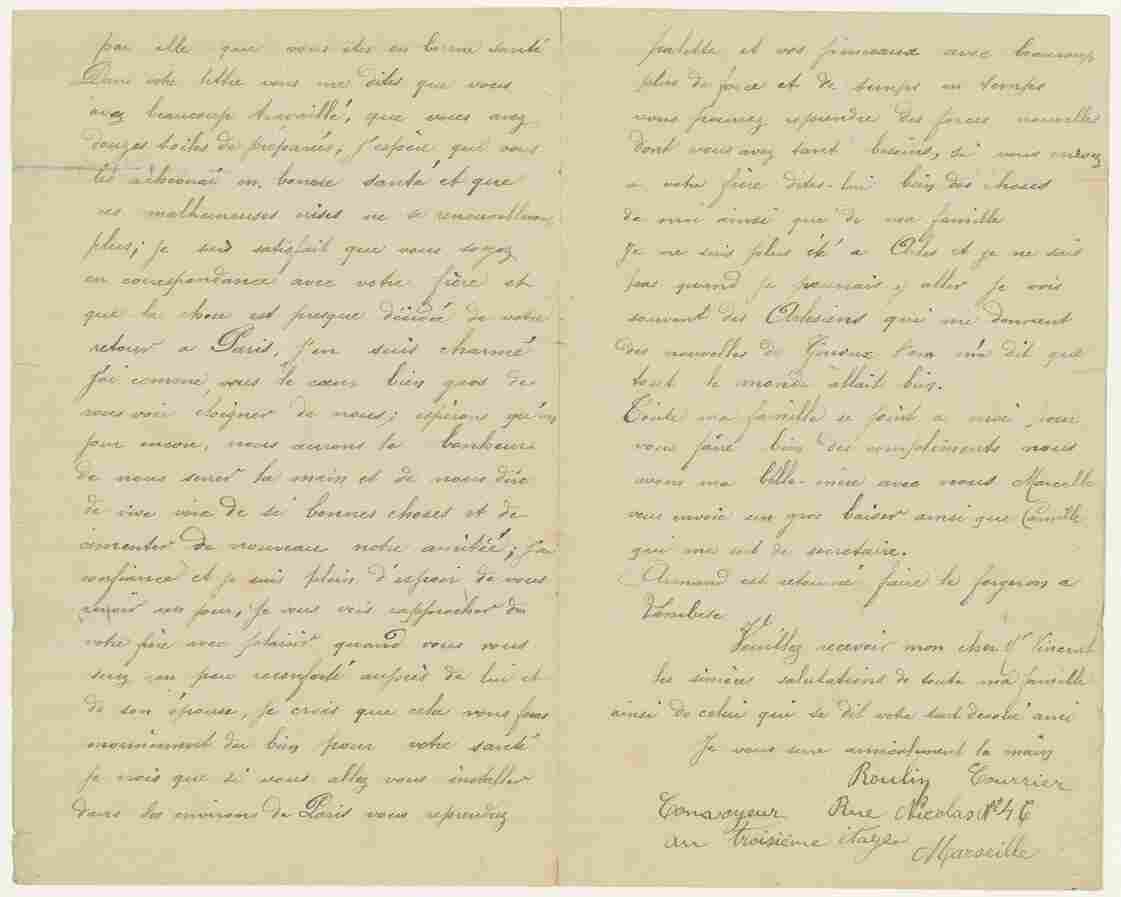 par elle que vous êtes en bonne santé
Dans votre lettre vous me dites que vous
avez beaucoup travaillé, que vous avez
douzes toiles de préparés; j'espère que vous
en bonne santé et que
ces malheureuses crises ne se renouvelleront
plus; je suis satisfait que vous soyez
en correspondance avec votre frère et
que la chose est presque décidé de votre
retour a Paris, j'en suis charmé
J'ai comme vous le cœur bien gros de
vous voir éloigner de nous; espérons qu'un
jour encore, nous aurons le bonheur
de nous serrer la main et de nous dire
de vive voix de si bonnes choses et de
cimenter de nouveau notre amitiée; j'ai
confiance et je suis plein d'espoir de vous
revoir un jour, je vous vois rapprocher de
votre frère avec plaisir quand vous vous
serez un peu reconforté auprès de lui et
de son épouse, je crois que cela vous fera
énormément du bien pour votre santé
je crois que si vous allez vous installer
dans les environs de Paris vous reprendrez
palette et vos pinceaux avec beaucoup
plus de force et de temps en temps
vous pourrez reprendre des forces nouvelles
dont vous avez tant besoins, si vous écrivez
a votre frère dites-lui bien des choses
de moi ainsi que de ma famille
Je ne suis plus été a Arles et je ne sais
pas quand je pourrais y aller je vois
souvent des Arlesiens qui me donnent
des nouvelles de Ginoux l'on m'a dit que
tout le monde allait bien.
Toute ma famille se joint a moi pour
vous faire bien des compliments nous
avons ma belle-mère avec nous Marcelle
vous envoie un gros baiser ainsi que Camille
qui me sert de secretaire.
Armand est retourné faire le forgeron a
Lambesc
Veuillez recevoir mon cher Mr Vincent
les sincères salutations de toute ma famille
ainsi de celui qui se dit votre tout dévoué ami
Je vous serre amicalement la main
Roulin Courrier
Convoyeur Rue Nicolas No 46
au troisième étage Marseille